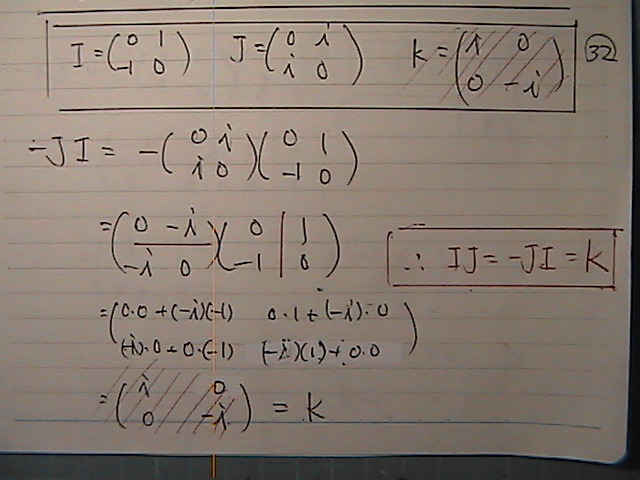 I = (0 1 -1 0) J = (0 i i 0) K = (i 0 0 -i) 32
-JI = -(0 i i 0)(0 1 -1 0)
= (0 -i -i 0)(0 1 -1 0)
∴ IJ = -JI = K
= (0·0+(-i)(-1) 0·1+(-i)·0
(-i)·0+0·(-1) (-i)(1)+0·0)
= (i 0 0 -i) = K